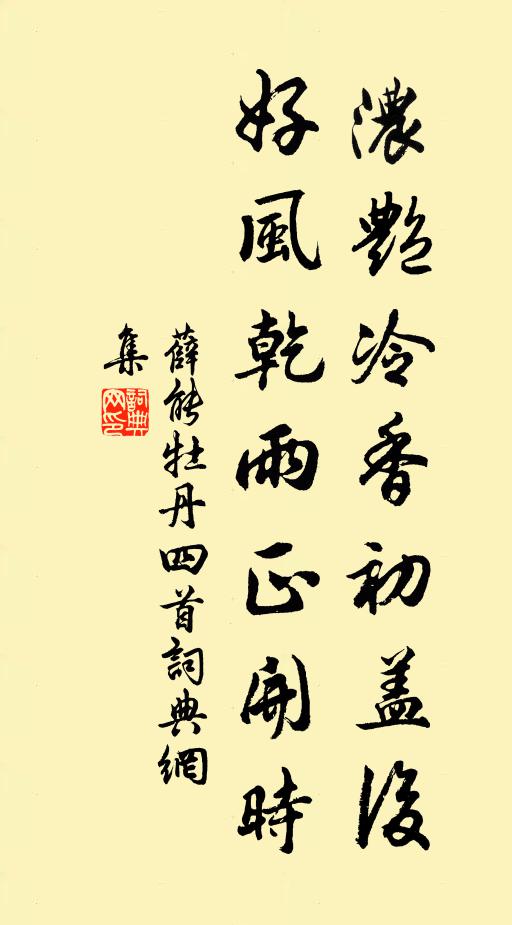 濃艷冷香初盖後
好風乾雨正開時
薛能牡丹四首詞典網
集
詞典
网印